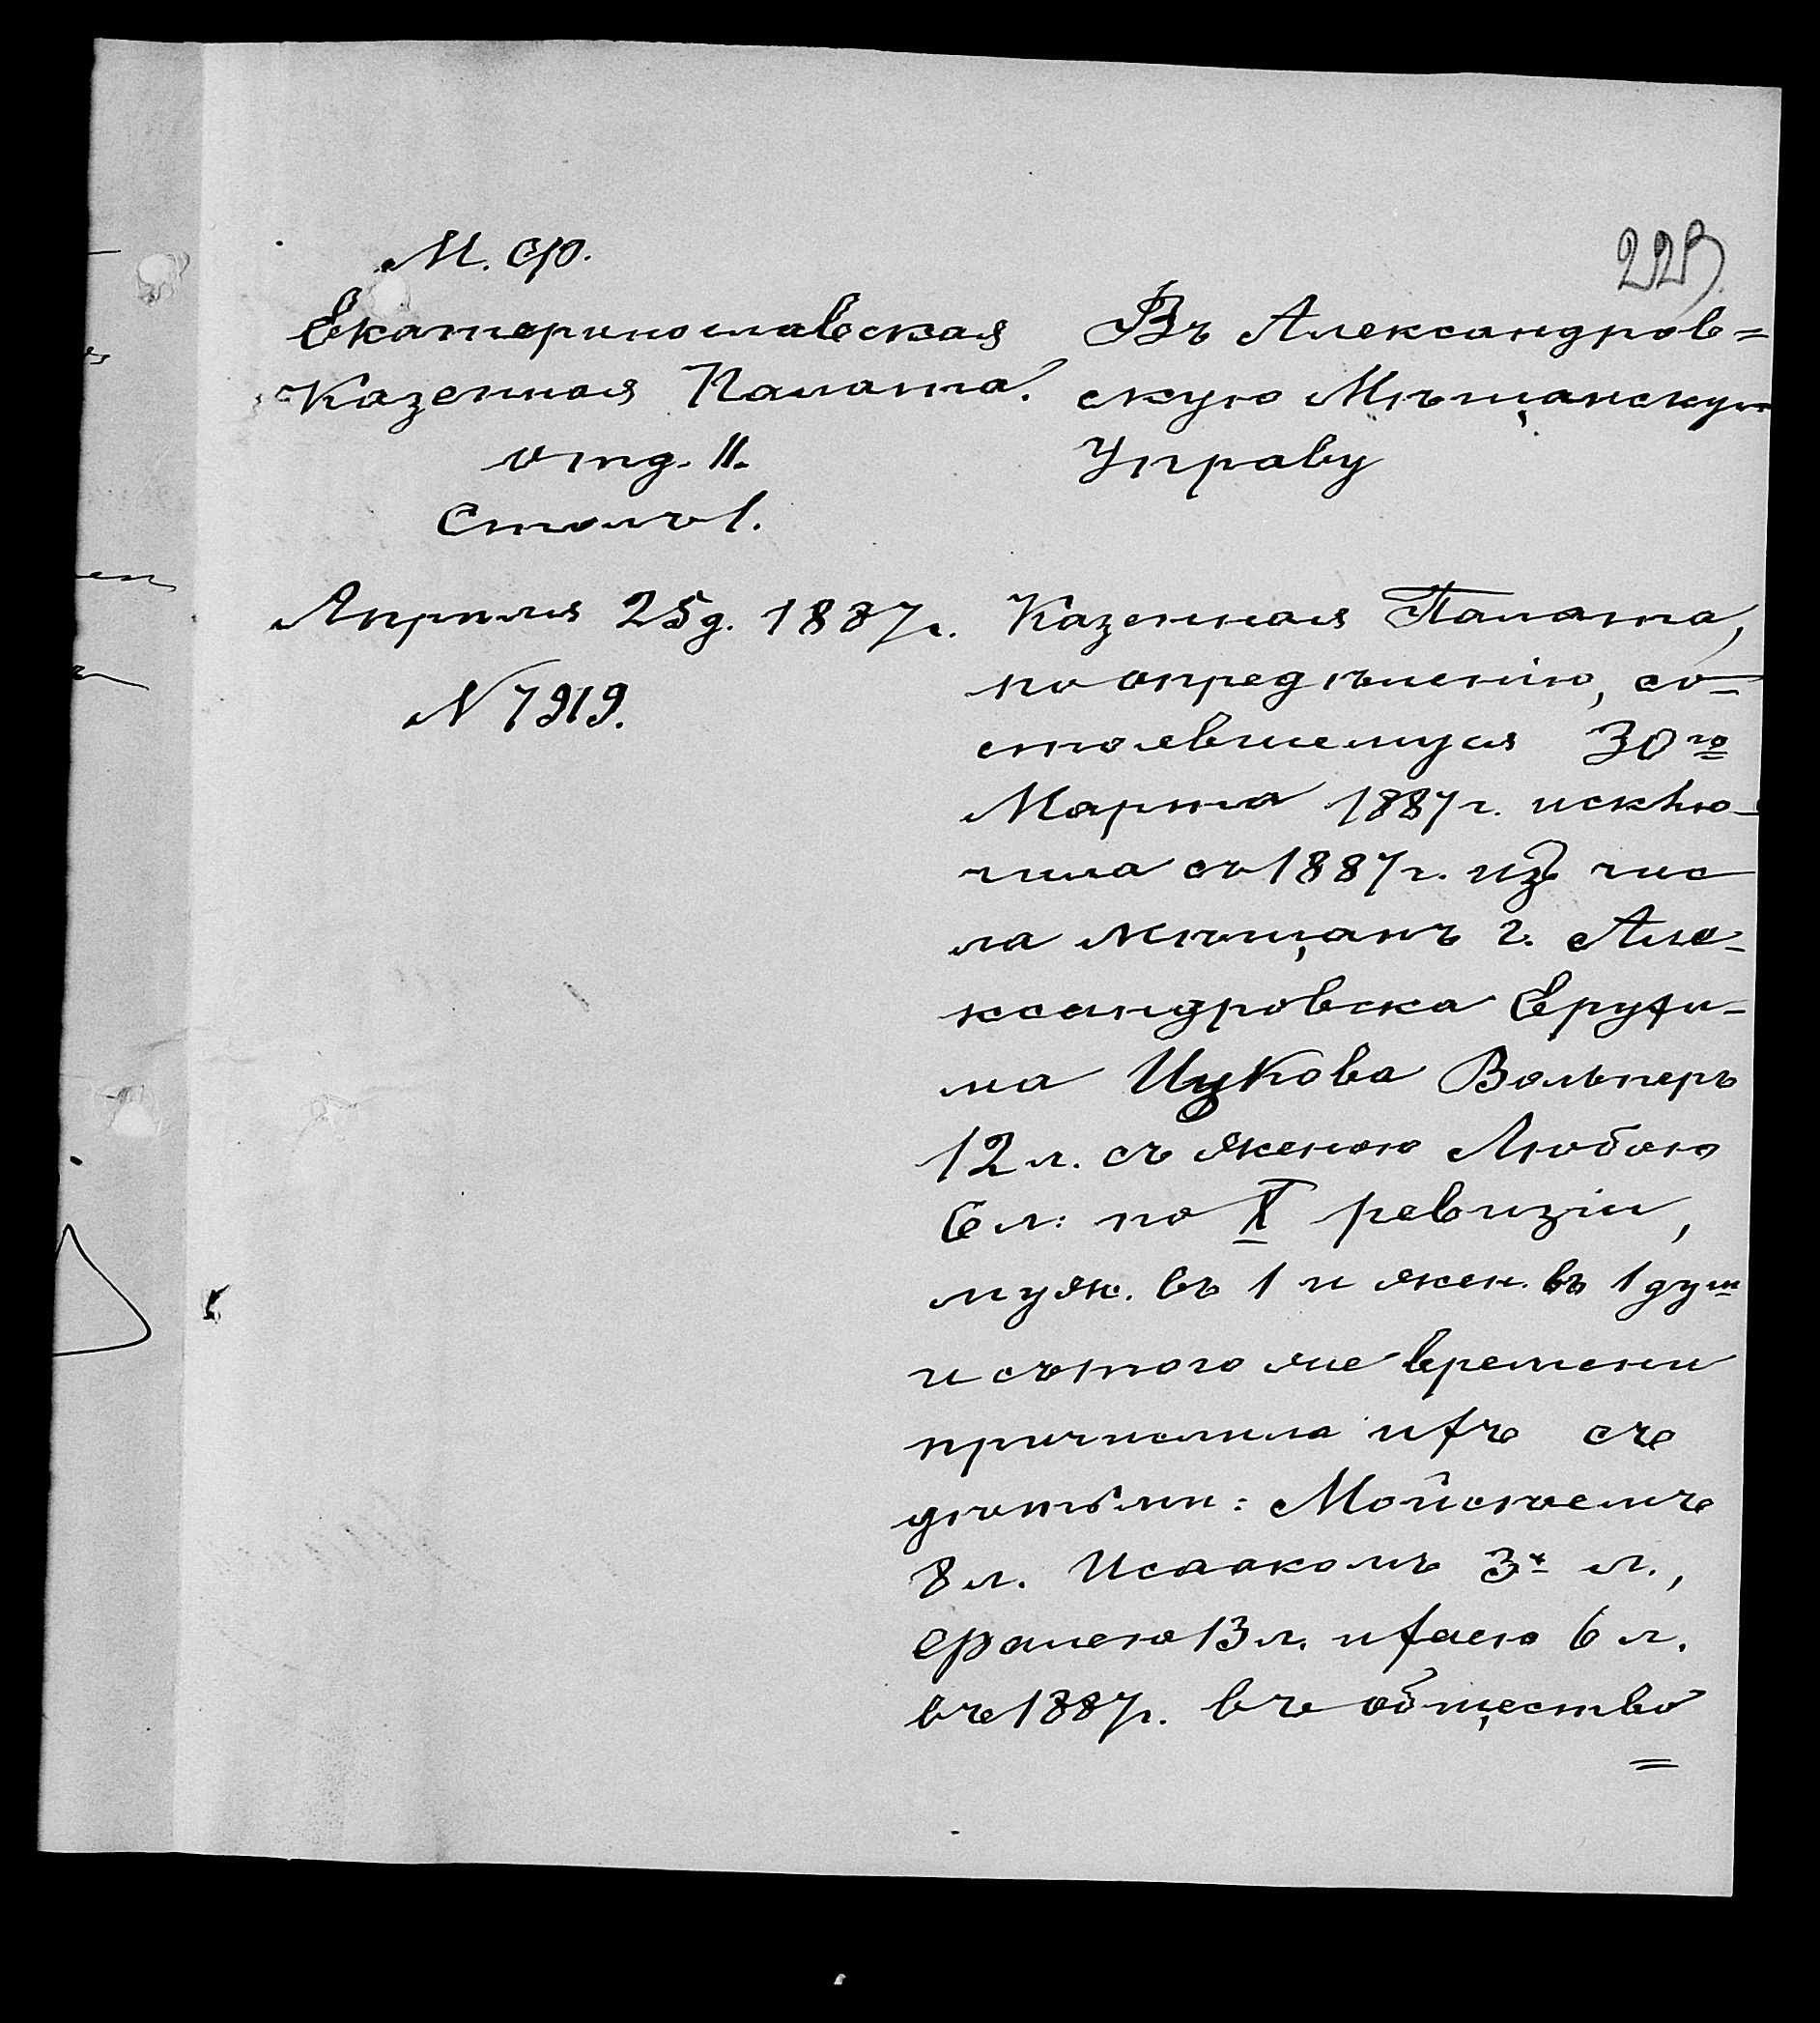 229
М. Ф.
Екатеринославская
Казенная Палата.
отд. II.
Столъ 1.
Апрѣля 25 д. 1887 г.
N 7919.
Въ Александров=
скую Мѣщанскую
Управу
Казенная Палата,
по опредѣленію, со-
стоявшемуся 30го
Марта 1887 г. исклю-
чила съ 1887 г. изъ чис
ла мѣщанъ г. Але-
ксандровска Ерухи-
ма Ицкова Вольперъ
12 л. съ женою Любою
6 л. по X ревизіи,
муж. въ 1 и жен. въ 1 душ
и съ того же времени
причислила ихъ съ
дѣтьми: Мойсѣемъ
8 л. Исаакомъ 3х л.,
13 л. и Хаею 6 л.
въ 1887 г. въ общество
=